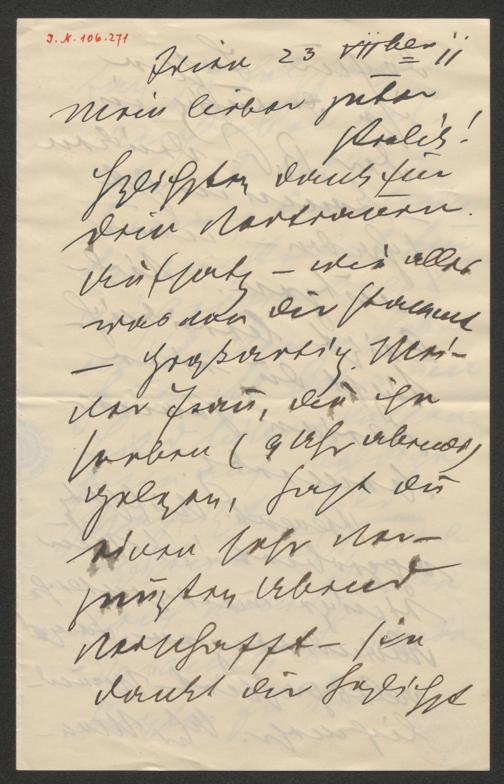 J.N. 106.271
Wien 23 11
Mein lieber guter
Kralik!
Herzlichsten Dank für
dein Vertrauen.
Aufsatz – wie alles
was von dir stammt
– großartig. Mei-
ner Frau, die ihn
soeben (9 Uhr abends)
gelesen, hast du
einen sehr ver-
gnügten Abend
verschafft – sie
dankt dir herzlichst